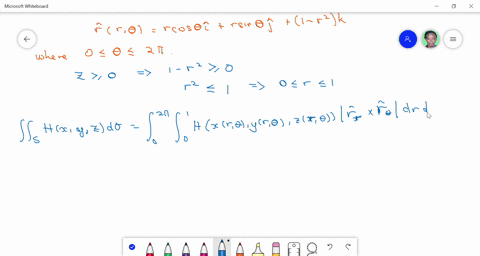 Microsoft Whiteboard
r̂(r,θ) = r cosθ î + r sinθ ĵ + (1-r²)k
where 0 ≤ θ ≤ 2π.
z ≥ 0 ⇒ 1-r² ≥ 0
r² ≤ 1 ⇒ 0 ≤ r ≤ 1
∬_S H(x,y,z)dσ = ∫_0^{2π} ∫_0^1 H(x(r,θ), y(r,θ), z(r,θ)) |r̂_r × r̂_θ| dr d